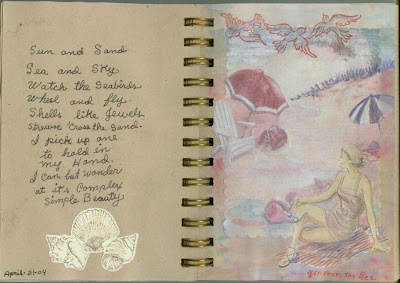 Sun and Sand
Sea and Sky
Watch the Seabirds
Wheel and fly.
Shells like Jewels
Strewn 'cross the Sand.
I pick up one
to hold in
my Hand.
I can but wonder
at it's Complex
Simple Beauty
April-21-04
Gift from the Sea